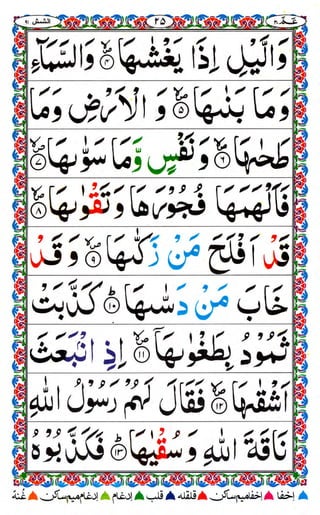 الشمس ٩١ ٢٥ عـمّ ٣٠
وَالَّيۡلِ اِذَا يَغۡشٰٮهَا ۙ‏﴿۴﴾ وَالسَّمَآءِ
وَمَا بَنٰٮهَا ۙ‏﴿۵﴾ وَ الۡاَرۡضِ وَمَا
طَحٰٮهَا ۙ‏﴿۶﴾ وَنَفۡسٍ وَّمَا سَوّٰٮهَا ۙ‏﴿۷﴾
فَاَلۡهَمَهَا فُجُوۡرَهَا وَتَقۡوٰٮهَا ۙ‏﴿۸﴾
قَدۡ اَفۡلَحَ مَنۡ زَكّٰٮهَا ۙ‏﴿۹﴾ وَقَدۡ
خَابَ مَنۡ دَسّٰٮهَا ؕ‏﴿۱۰﴾ كَذَّبَتۡ
ثَمُوۡدُ بِطَغۡوٰٮهَآ ۙ‏﴿۱۱﴾ اِذِ انۡۢبَعَثَ
اَشۡقٰٮهَا ۙ‏﴿۱۲﴾ فَقَالَ لَهُمۡ رَسُوۡلُ اللّٰهِ
نَاقَةَ اللّٰهِ وَسُقۡيٰهَا ؕ‏﴿۱۳﴾ فَكَذَّبُوۡهُ
اخفا اخفامیم ساکن قلقله قلب ادغام ادغام میم ساکن غنه